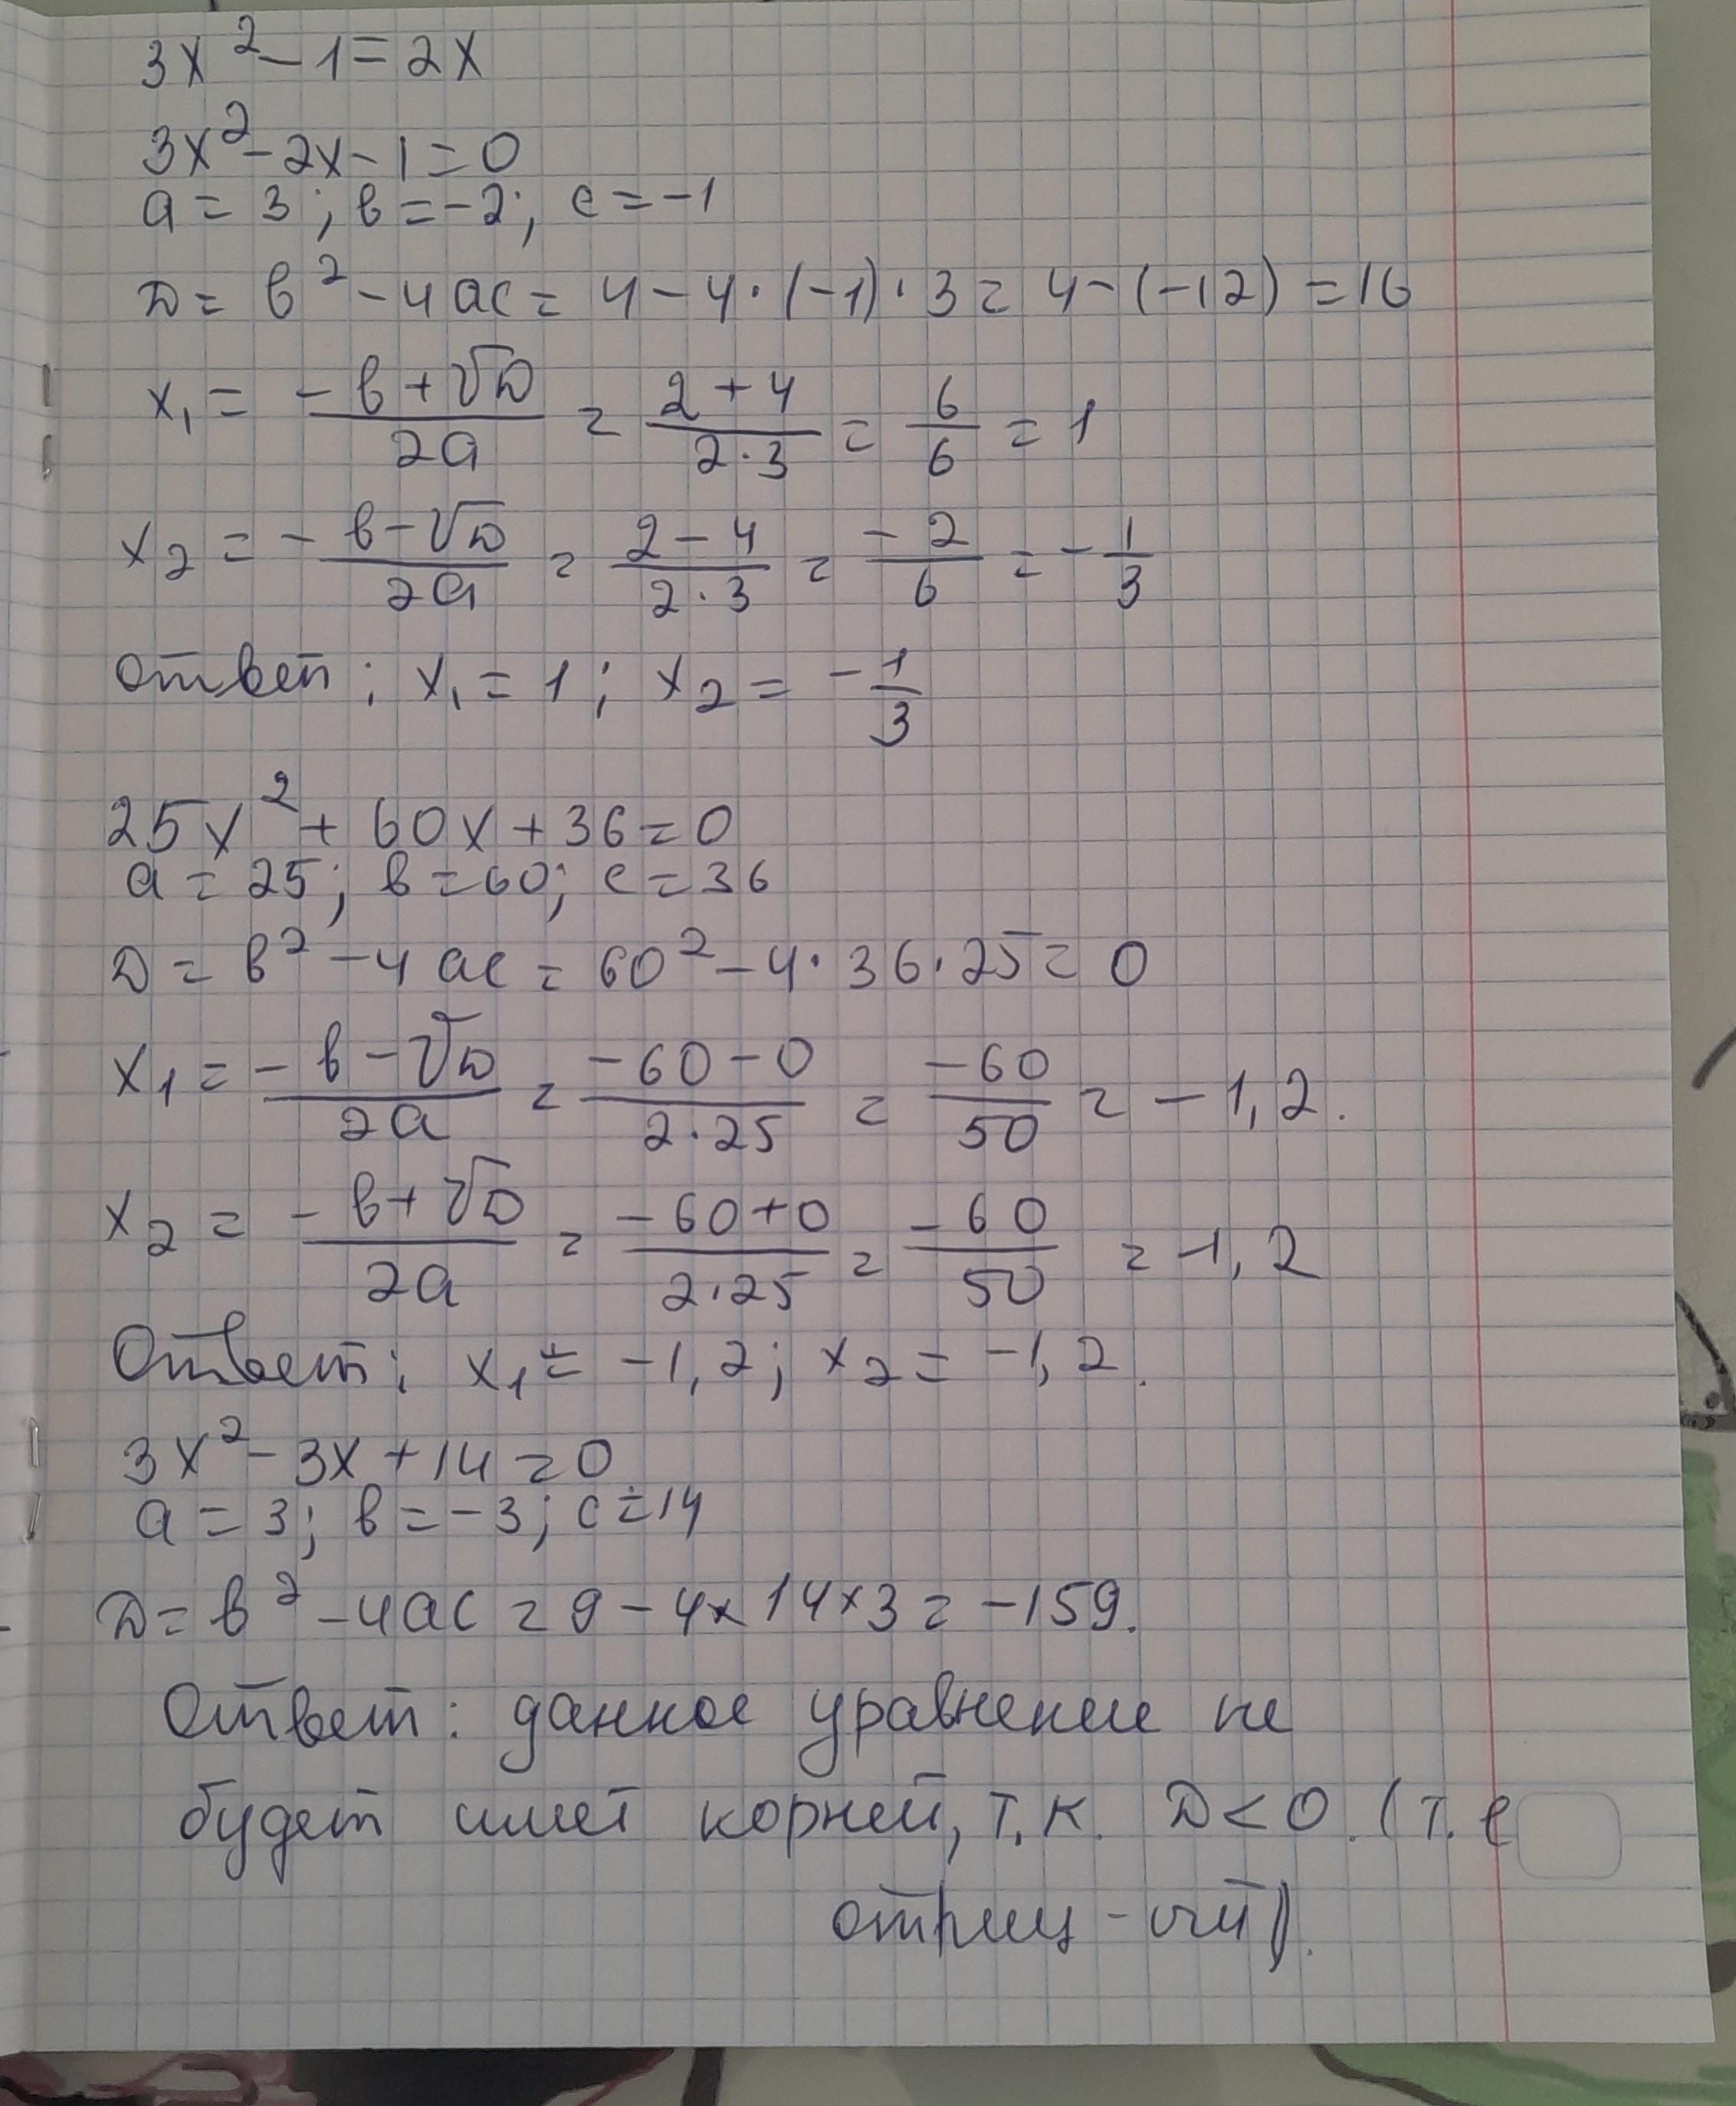 3x² - 1 = 2x
3x² - 2x - 1 = 0
a = 3; в = -2; c = -1
D = в² - 4ac = 4 - 4·(-1)·3 = 4 - (-12) = 16
x₁ = (-в + √D)/(2a) = (2 + 4)/(2·3) = 6/6 = 1
x₂ = (-в - √D)/(2a) = (2 - 4)/(2·3) = -2/6 = -1/3
Ответ: x₁ = 1; x₂ = -1/3
25x² + 60x + 36 = 0
a = 25; в = 60; c = 36
D = в² - 4ac = 60² - 4·36·25 = 0
x₁ = (-в - √D)/(2a) = (-60 - 0)/(2·25) = -60/50 = -1,2.
x₂ = (-в + √D)/(2a) = (-60 + 0)/(2·25) = -60/50 = -1,2
Ответ: x₁ = -1,2; x₂ = -1,2.
3x² - 3x + 14 = 0
a = 3; в = -3; c = 14
D = в² - 4ac = 9 - 4×14×3 = -159.
Ответ: данное уравнение не
будет имет корней, т.к. D < 0. (т.е
отриц-ый).